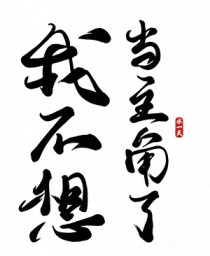 我不想
当主角了
水一天